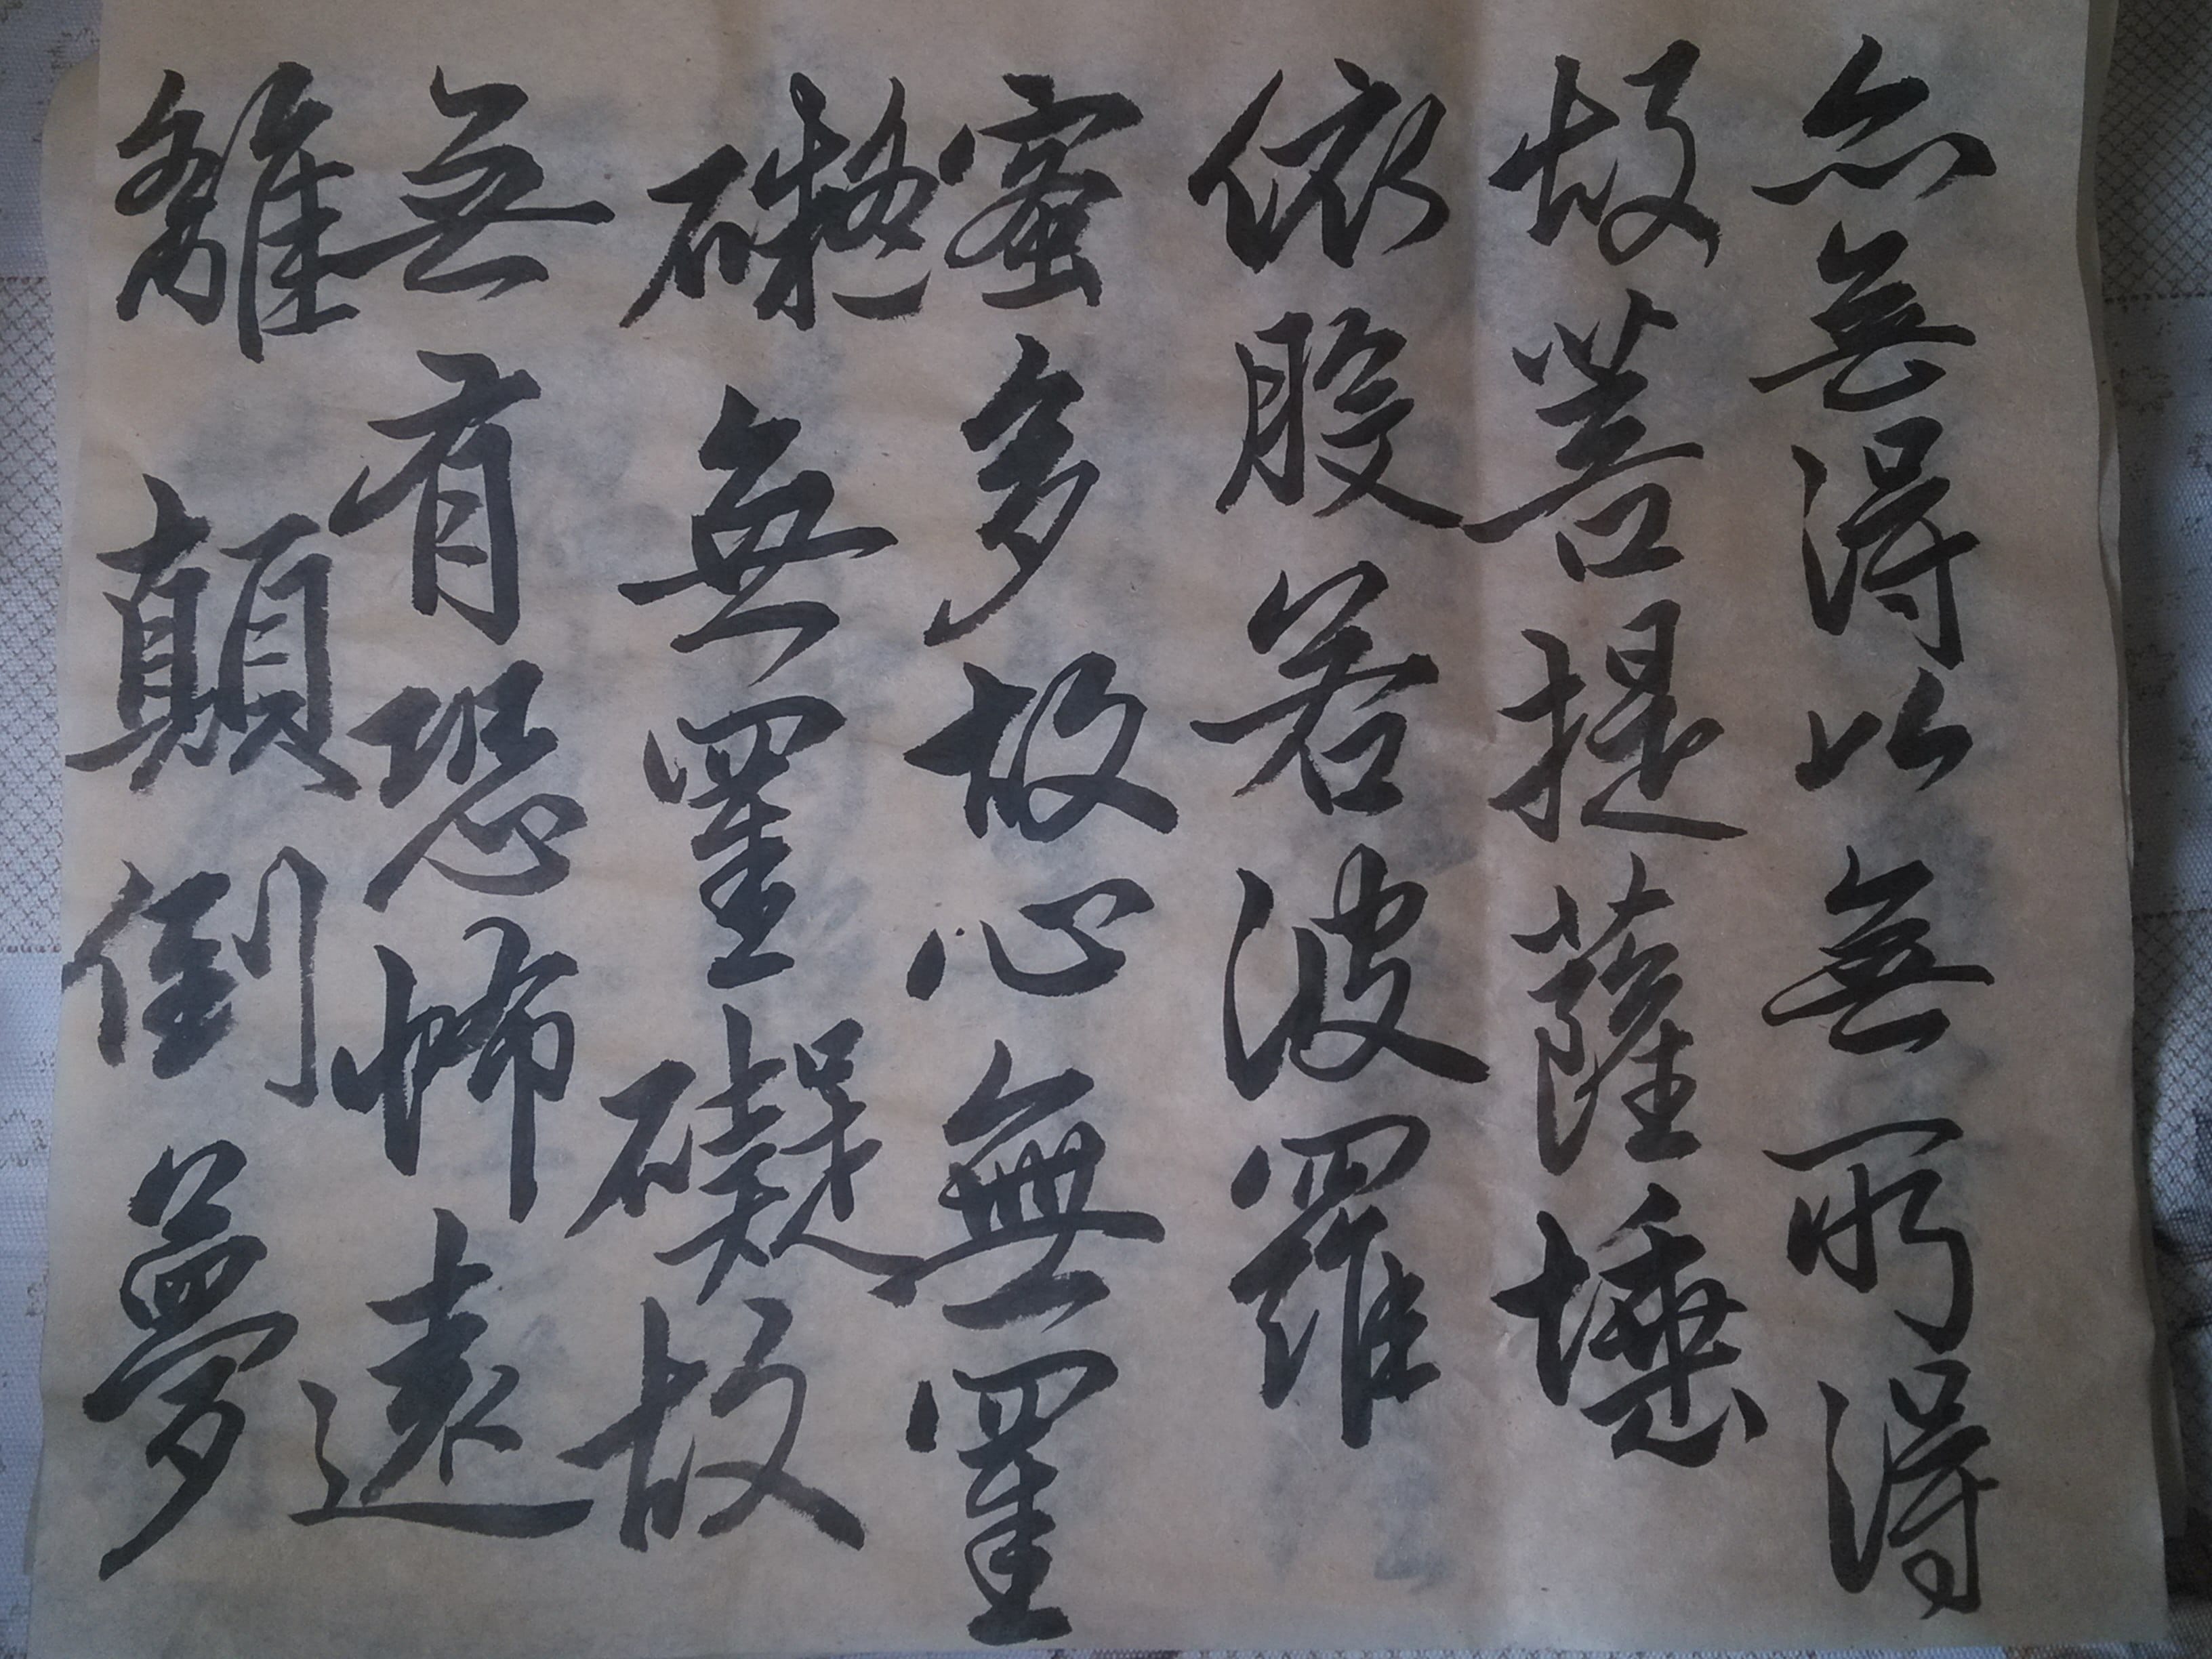 亦無得以無所得
故菩提薩埵
依般若波羅
蜜多故心無罣
礙無罣礙故
無有恐怖遠
離顛倒夢